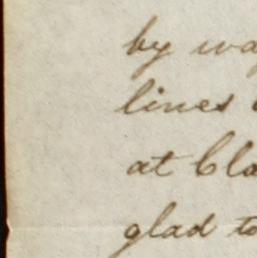 by wa
lines
at Cla
glad to